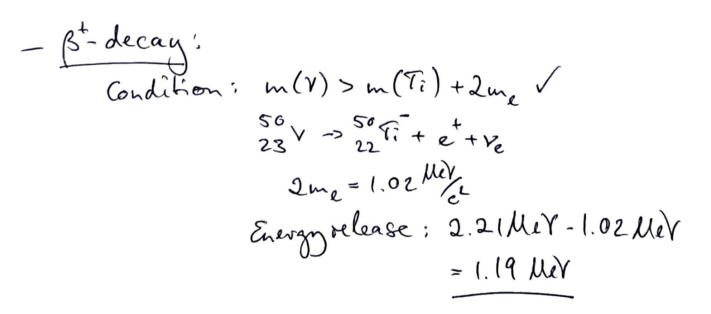 - β⁺-decay:
Condition: m(V) > m(Ti) + 2mₑ ✓
⁵⁰₂₃V -> ⁵⁰₂₂Ti⁻ + e⁺ + νₑ
2mₑ = 1.02 MeV/c²
Energy release: 2.21 MeV - 1.02 MeV
= 1.19 MeV